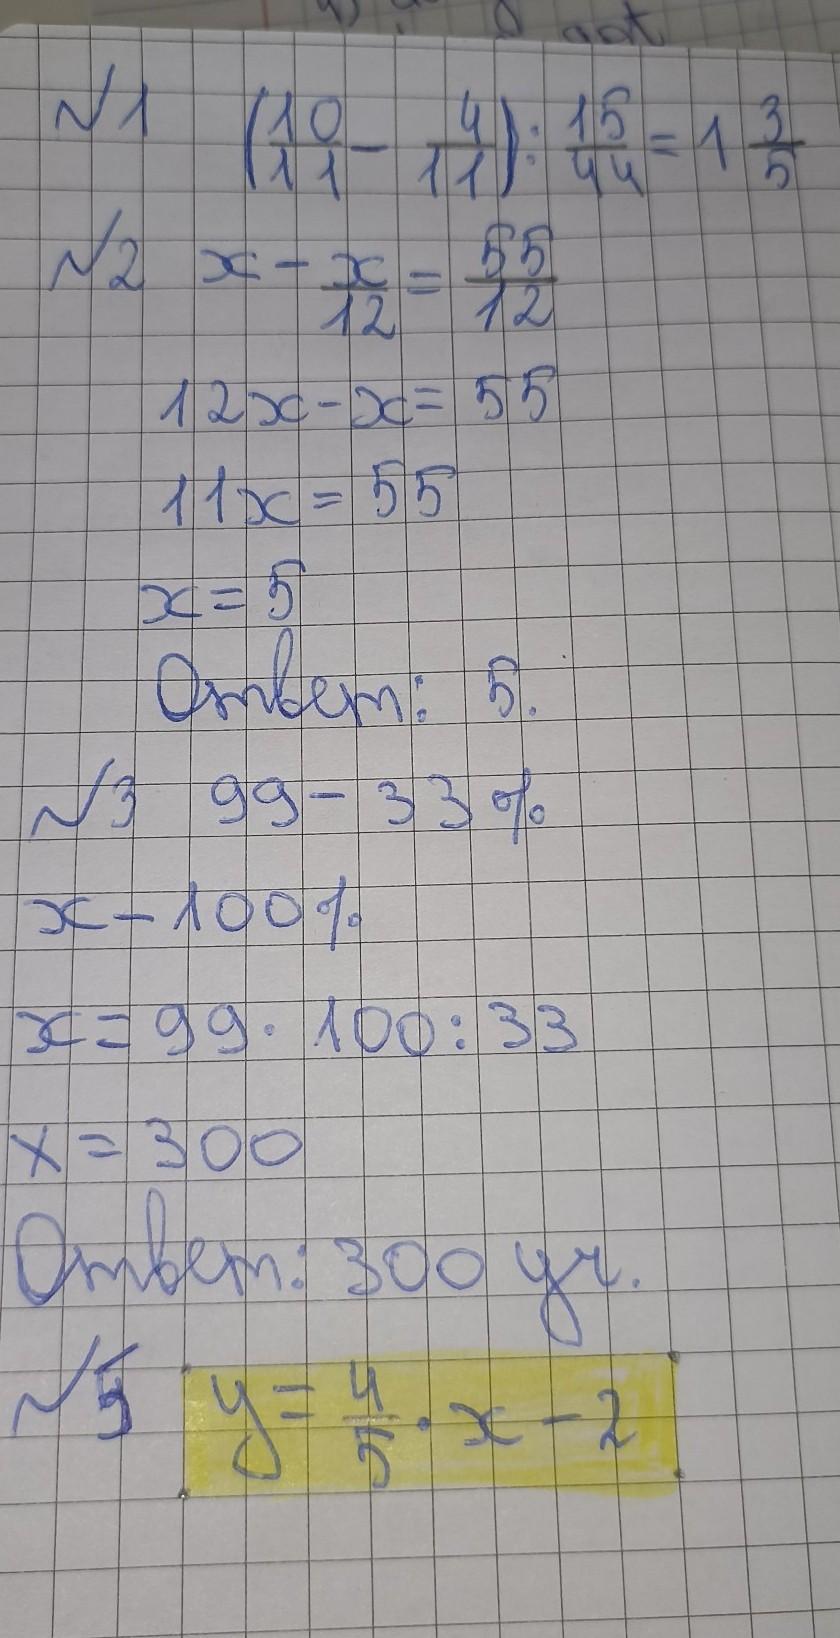 №1 (10/11 - 4/11) : 15/44 = 1 3/5
№2 x - x/12 = 55/12
12x - x = 55
11x = 55
x = 5
Ответ: 5.
№3 99 - 33%
x - 100%
x = 99 · 100 : 33
x = 300
Ответ: 300 уч.
№5 y = 4/5 · x - 2